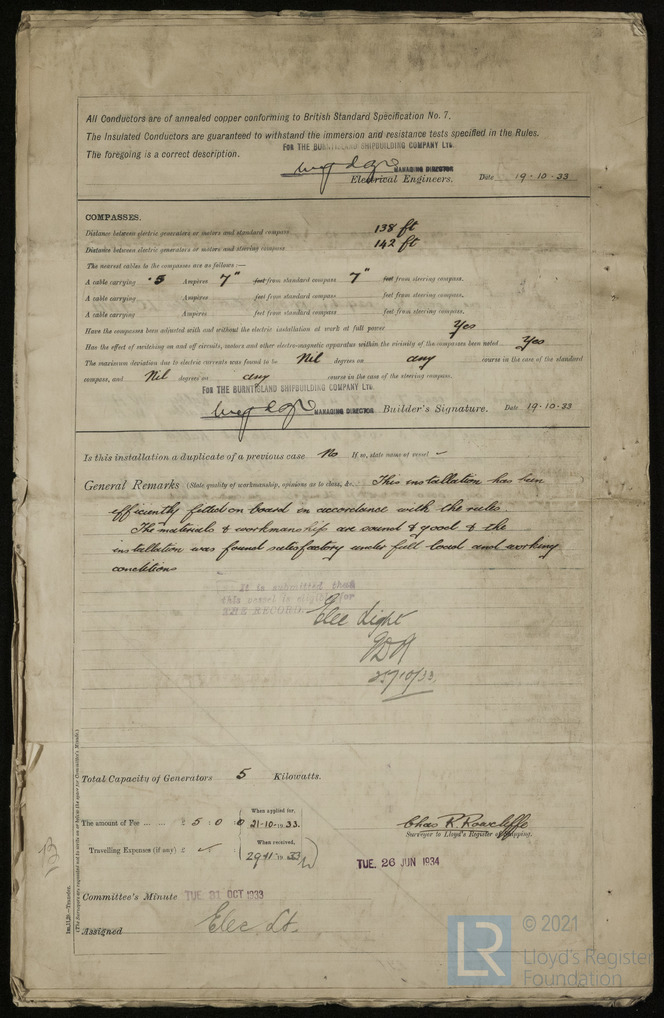 All Conductors are of annealed copper conforming to British Standard Specification No. 7.
The Insulated Conductors are guaranteed to withstand the immersion and resistance tests specified in the Rules.
The foregoing is a correct description.
FOR THE BURNTISLAND SHIPBUILDING COMPANY LTD.
MANAGING DIRECTOR
Electrical Engineers. Date 19-10-33
COMPASSES.
Distance between electric generators or motors and standard compass 138 ft
Distance between electric generators or motors and steering compass 142 ft
The nearest cables to the compasses are as follows:—
A cable carrying .5 Amperes 7" feet from standard compass 7" feet from steering compass.
A cable carrying Amperes feet from standard compass feet from steering compass.
A cable carrying Amperes feet from standard compass feet from steering compass.
Have the compasses been adjusted with and without the electric installation at work at full power Yes
Has the effect of switching on and off circuits, motors and other electro-magnetic apparatus within the vicinity of the compasses been noted Yes
The maximum deviation due to electric currents was found to be Nil degrees on any course in the case of the standard
compass, and Nil degrees on any course in the case of the steering compass.
FOR THE BURNTISLAND SHIPBUILDING COMPANY LTD.
MANAGING DIRECTOR Builder's Signature. Date 19-10-33
Is this installation a duplicate of a previous case No If so, state name of vessel
General Remarks (State quality of workmanship, opinions as to class, &c. This installation has been
efficiently fitted on board in accordance with the rules.
The materials & workmanship are sound & good & the
installation was found satisfactory under full load and working
conditions
It is submitted that
this vessel is eligible for
THE RECORD. Elec Light
Total Capacity of Generators 5 Kilowatts.
The amount of Fee ... ... £ 5 : 0 : 0
When applied for,
21-10-1933.
Travelling Expenses (if any) £
When received,
29-11-1933
Chas R. Rowcliffe
Surveyor to Lloyd's Register of Shipping.
TUE. 26 JUN 1934
Committee's Minute TUE. 31 OCT 1933
Assigned Elec. Lt.
(The Surveyors are requested not to write on or below the space for Committee's Minute.)
© 2021
LR
Lloyd's Register
Foundation